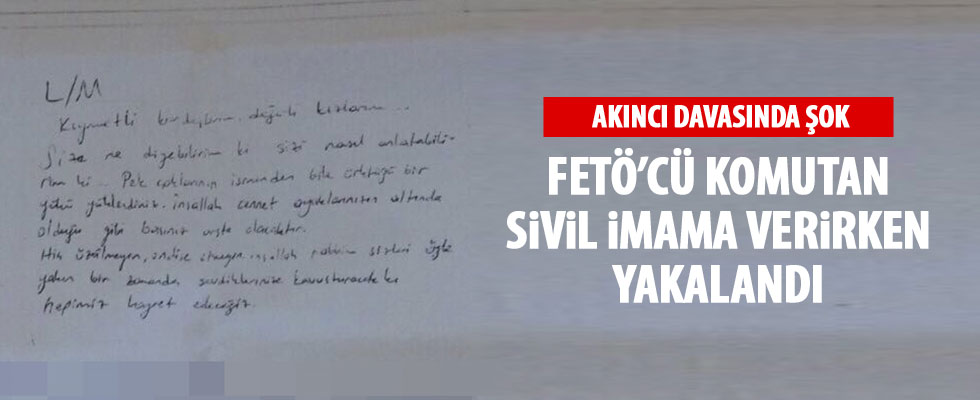 L/M
Kıymetli kardeşlerim, değerli kızlarım...
Size ne diyebilirim ki sizi nasıl anlatabili-
rim ki... Pek çoklarının isminden bile ürktüğü bir
yükü yüklendiniz. İnşallah cennet ayaklarınızın altında
olduğu gibi başınız üste olacaktır.
Hiç üzülmeyin, endişe etmeyin inşallah rabbim sizleri öyle
yakın bir zamanda sevdiklerinize kavuşturacak ki
hepimiz hayret edeceğiz.
AKINCI DAVASINDA ŞOK
FETÖ'CÜ KOMUTAN
SİVİL İMAMA VERİRKEN
YAKALANDI